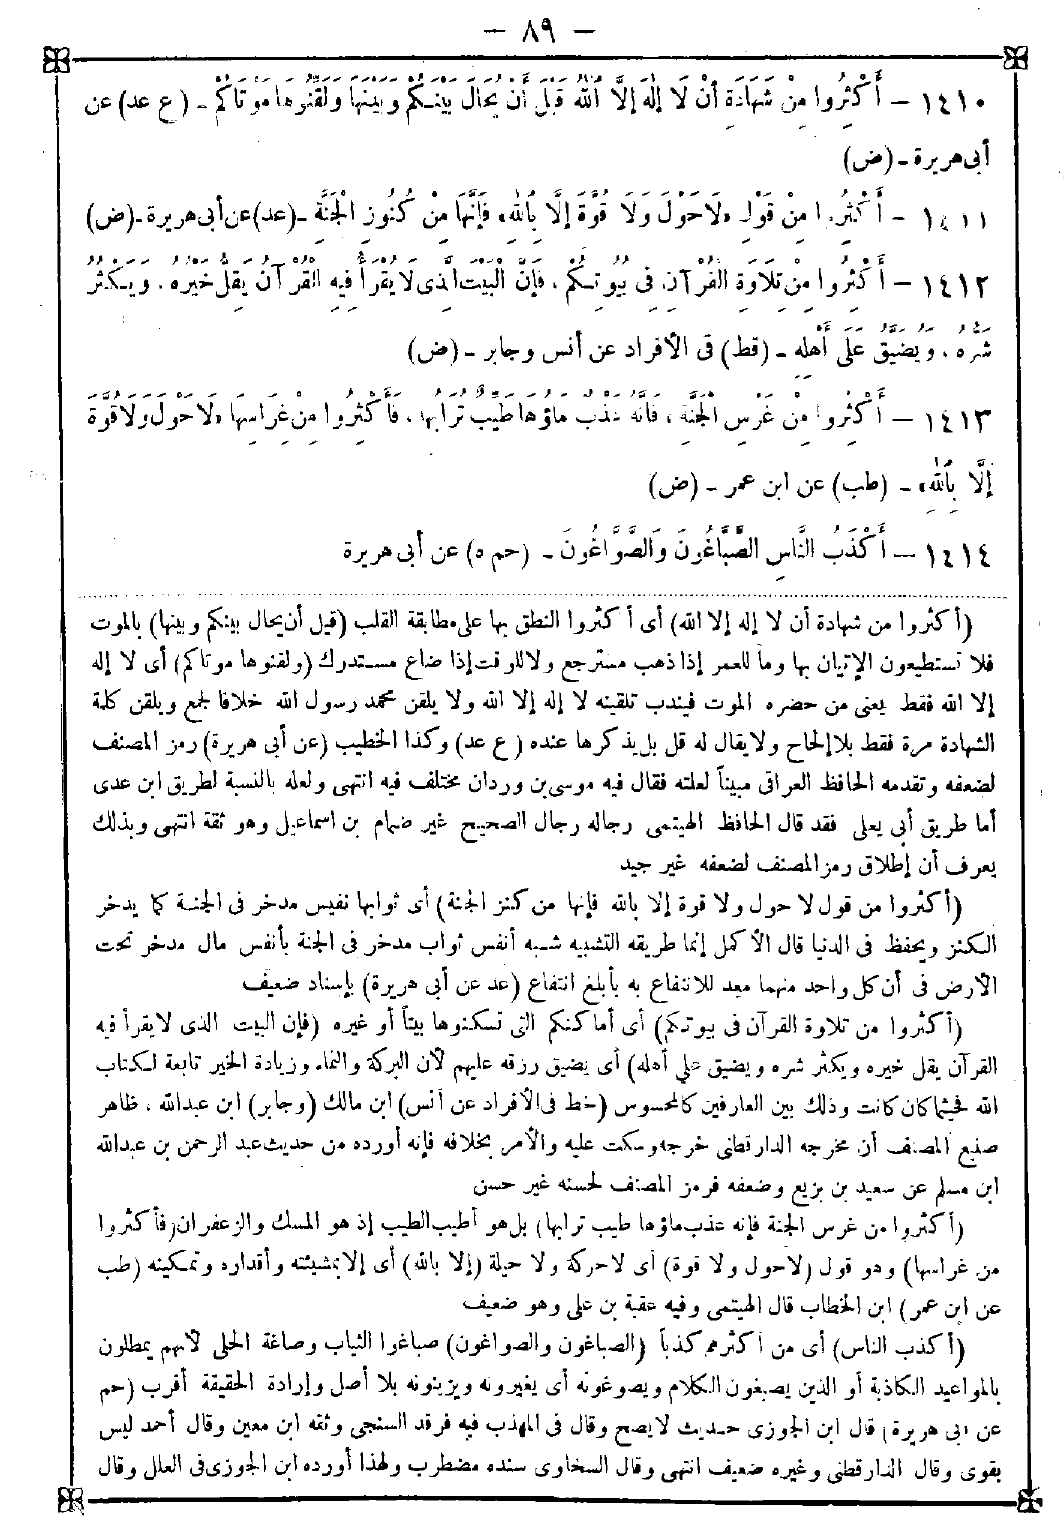 — ٨٩ —
١٤١٠ — أَكْثِرُوا مِنْ شَهَادَةِ أَنْ لَا إِلٰهَ إِلَّا اللّٰهُ قَبْلَ أَنْ يُحَالَ بَيْنَكُمْ وَبَيْنَهَا وَلَقِّنُوهَا مَوْتَاكُمْ ـ (ع عد) عن
أبى هريرة ـ (ض)
١٤١١ — أَكْثِرُوا مِنْ قَوْلِ «لَا حَوْلَ وَلَا قُوَّةَ إِلَّا بِاللّٰهِ» فَإِنَّهَا مِنْ كُنُوزِ الْجَنَّةِ ـ (عد) عن أبى هريرة ـ (ض)
١٤١٢ — أَكْثِرُوا مِنْ تِلَاوَةِ الْقُرْآنِ فِى بُيُوتِكُمْ، فَإِنَّ الْبَيْتَ الَّذِى لَا يُقْرَأُ فِيهِ الْقُرْآنُ يَقِلُّ خَيْرُهُ، وَيَكْثُرُ
شَرُّهُ، وَيُضَيَّقُ عَلَى أَهْلِهِ ـ (قط) فى الأفراد عن أنس وجابر ـ (ض)
١٤١٣ — أَكْثِرُوا مِنْ غَرْسِ الْجَنَّةِ، فَإِنَّهُ عَذْبٌ مَاؤُهَا طَيِّبٌ تُرَابُهَا، فَأَكْثِرُوا مِنْ غِرَاسِهَا «لَا حَوْلَ وَلَا قُوَّةَ
إِلَّا بِاللّٰهِ» ـ (طب) عن ابن عمر ـ (ض)
١٤١٤ — أَكْذَبُ النَّاسِ الصَّبَّاغُونَ وَالصَّوَّاغُونَ ـ (حم ه) عن أبى هريرة
(أكثروا من شهادة أن لا إله إلا الله) أى أكثروا النطق بها على مطابقة القلب (قبل أن يحال بينكم وبينها) بالموت
فلا تستطيعون الإتيان بها وما للعمر إذا ذهب مسترجع ولا للوقت إذا ضاع مستدرك (ولقنوها موتاكم) أى لا إله
إلا الله فقط يعنى من حضره الموت فيندب تلقينه لا إله إلا الله ولا يلقن محمد رسول الله خلافا لجمع ويلقن كلمة
الشهادة مرة فقط بلا إلحاح ولا يقال له قل بل يذكرها عنده (ع عد) وكذا الخطيب (عن أبى هريرة) رمز المصنف
لضعفه وتقدمه الحافظ العراقى مبيناً لعلته فقال فيه موسى بن وردان مختلف فيه انتهى ولعله بالنسبة لطريق ابن عدى
أما طريق أبى يعلى فقد قال الحافظ الهيتمى رجاله رجال الصحيح غير ضمام بن اسماعيل وهو ثقة انتهى وبذلك
يعرف أن إطلاق رمز المصنف لضعفه غير جيد
(أكثروا من قول لا حول ولا قوة إلا بالله فإنها من كنز الجنة) أى ثوابها نفيس مدخر فى الجنة كما يدخر
الكنز ويحفظ فى الدنيا قال الأكمل إنما طريقه التشبيه شبه أنفس ثواب مدخر فى الجنة بأنفس مال مدخر تحت
الأرض فى أن كل واحد منهما معد للانتفاع به بأبلغ انتفاع (عد عن أبى هريرة) بإسناد ضعيف
(أكثروا من تلاوة القرآن فى بيوتكم) أى أماكنكم التى تسكنوها بيتاً أو غيره (فإن البيت الذى لا يقرأ فيه
القرآن يقل خيره ويكثر شره ويضيق على أهله) أى يضيق رزقه عليهم لأن البركة والنماء وزيادة الخير تابعة لكتاب
الله فحيثما كان كانت وذلك بين العارفين كالمحسوس (خط فى الأفراد عن أنس) ابن مالك (وجابر) ابن عبدالله، ظاهر
صنيع المصنف أن مخرجه الدارقطنى خرجه وسكت عليه والأمر بخلافه فإنه أورده من حديث عبد الرحمن بن عبدالله
ابن مسلم عن سعيد بن بزيع وضعفه فرمز المصنف لحسنه غير حسن
(أكثروا من غرس الجنة فإنه عذب ماؤها طيب ترابها) بل هو أطيب الطيب إذ هو المسك والزعفران (فأكثروا
من غراسها) وهو قول (لا حول ولا قوة) أى لا حركة ولا حيلة (إلا بالله) أى إلا بمشيئته وأقداره وتمكينه (طب
عن ابن عمر) ابن الخطاب قال الهيتمى وفيه عقبة بن على وهو ضعيف
(أكذب الناس) أى من أكثرهم كذباً (الصباغون والصواغون) صباغوا الثياب وصاغة الحلى لأنهم يمطلون
بالمواعيد الكاذبة أو الذين يصبغون الكلام ويصوغونه أى يغيرونه ويزينونه بلا أصل وإرادة الحقيقة أقرب (حم
عن أبى هريرة) قال ابن الجوزى حديث لا يصح وقال فى المهذب فيه فرقد السنجى وثقه ابن معين وقال أحمد ليس
بقوى وقال الدارقطنى وغيره ضعيف انتهى وقال السخاوى سنده مضطرب ولهذا أورده ابن الجوزى فى العلل وقال